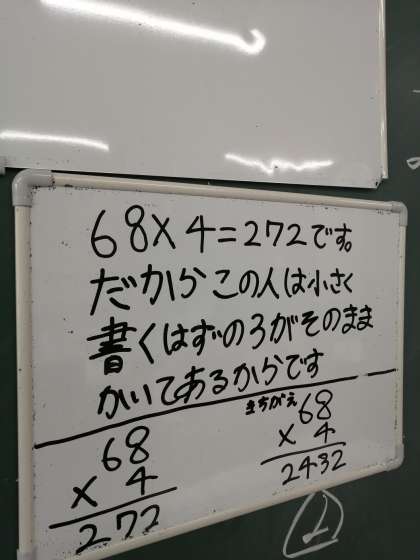 68×4=272です。
だからこの人は小さく
書くはずの3がそのまま
かいてあるからです
68
× 4
272
まちがえ
68
× 4
2432